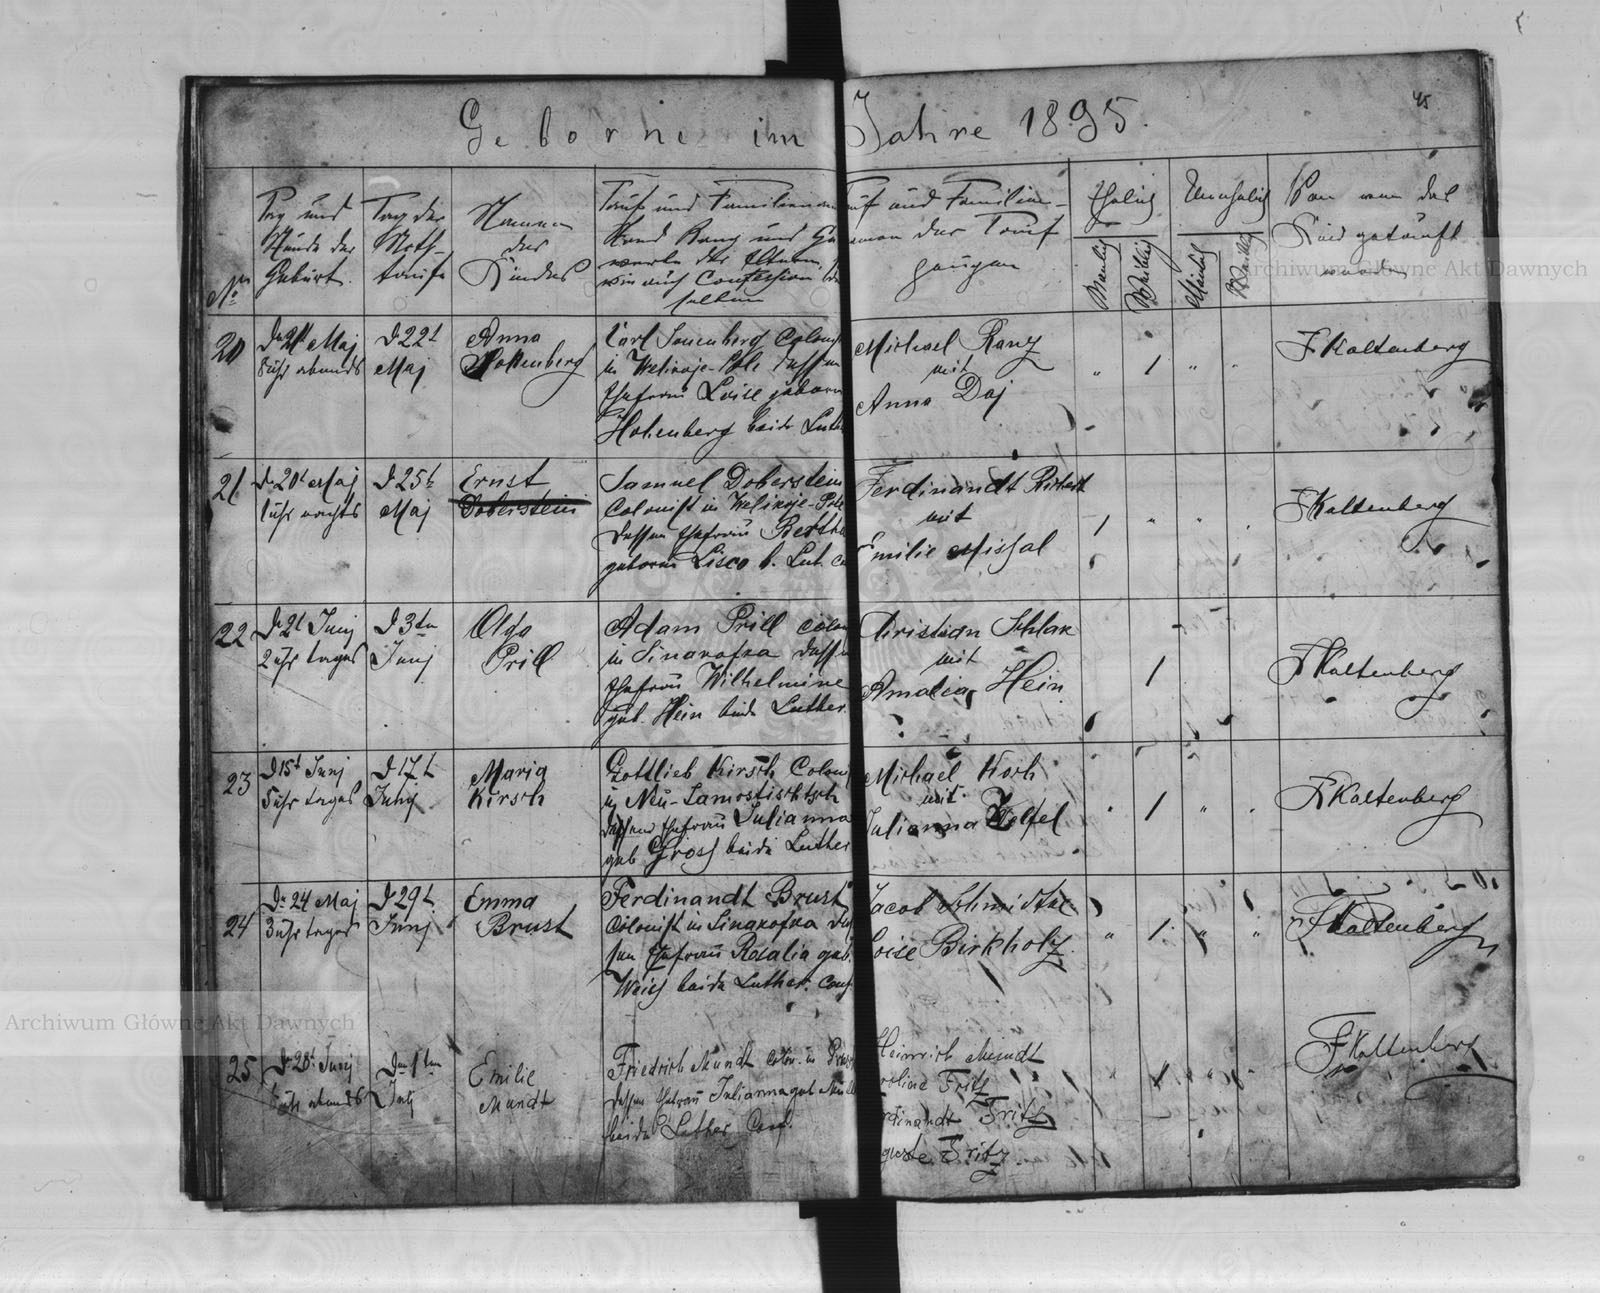 Geborne im Jahre 1895.
45
No
Tag und
Stunde der
Geburt.
Tag der
Noth-
taufe
Namen
des
Kindes
Tauf und Familiennam
Stand Rang und Ge
werbe der Eltern,
wie auch Confession der
selben
Tauf und Familien-
namen der Tauf
zeugen
Ehelich
Unehelich
Männlich
Weiblich
Männlich
Weiblich
Von wem das
Kind getauft
worden
20
Maj
8 uhr abends
D 22t
Maj
Anna
Carl Sonenberg Colonist
in Welinoje-Pole dessen
Ehefrau Loise geboren
Hohenberg beide Luth
Michael Ranz
mit
Anna Daj
" 1 " "
F Kaltenberg
21
D 20t Maj
1 uhr nachts
D 25t
Maj
Ernst
Doberstein
Samuel Doberstein
Colonist in Welinoje-Pole
dessen Ehefrau Bertha
geboren Lisco b. Luth. C
Ferdinandt
mit
Emilie Missal
1 " " "
F Kaltenberg
22
D 2t Junj
2 uhr tages
D 3ten
Junj
Olga
Prill
Adam Prill Colon
in Sinarofka dessen
Ehefrau Wilhelmine
geb. Hein beide Luther.
Christian Schlak
mit
Amalia Hein
1
F Kaltenberg
23
D 15t Junj
5 uhr tages
D 17t
Junj
Maria
Kirsch
Gottlieb Kirsch Colonist
in Neu-Samostischtsch
dessen Ehefrau Julianna
geb Gross beide Luther
Michael Koch
mit
Julianna
" 1 " "
F Kaltenberg
24
D. 24 Maj
3 uhr tages
D 29t
Junj
Emma
Brust
Ferdinandt Brust
Colonist in Sinarofka des
sen Ehefrau Rosalia geb.
Weiss beide Luther. Conf
Jacob Schmidtke
Loise Birkholz
" 1 " "
F Kaltenberg
25
D 28t Junj
uhr abends
Den 1ten
Julj
Emilie
Mundt
Friedrich Mundt Colon. in
dessen Ehefrau Julianna geb
beide Luther Conf.
Heinrich Mundt
roline Fritz
rdinandt Fritz
guste Fritz
" 1 " "
F Kaltenberg
Archiwum Główne Akt Dawnych
Archiwum Główne Akt Dawnych